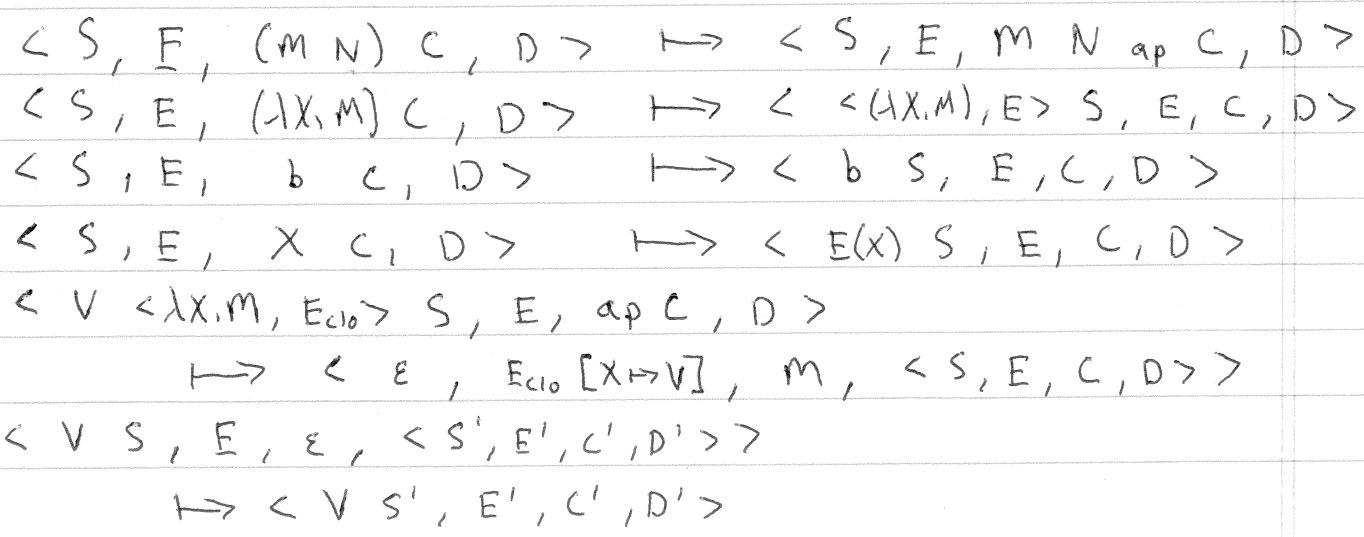 < S, E, (M N) C, D > ↦ < S, E, M N ap C, D >
< S, E, (λX.M) C, D > ↦ < <(λX.M), E> S, E, C, D >
< S, E, b C, D > ↦ < b S, E, C, D >
< S, E, X C, D > ↦ < E(X) S, E, C, D >
< V <λX.M, E_clo> S, E, ap C, D >
↦ < ε, E_clo [X↦V], M, < S, E, C, D > >
< V S, E, ε, < S', E', C', D' > >
↦ < V S', E', C', D' >